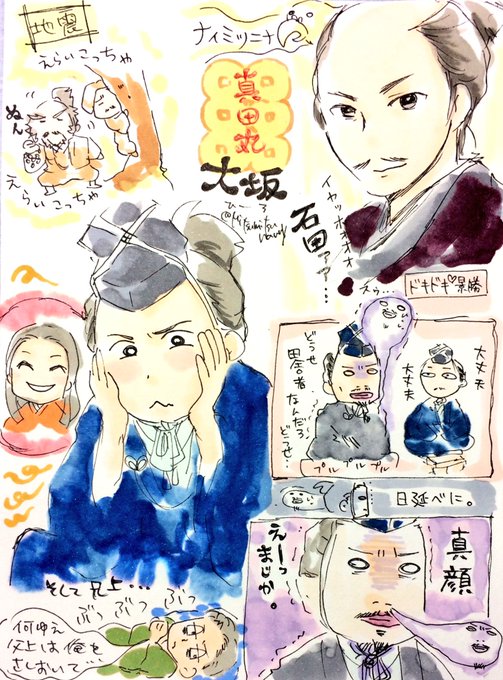 地震
えらいこっちゃ
ぬん
えらいこっちゃ
ナイミツニナ
真田丸
大坂
ひーろ
イヤッホォォォ
石田ァァ…
ドキドキ♡景勝
えぅ…
どうせ
田舎者
なんだろ
どうせ…
大丈夫
大丈夫
プルプルプル
日延べに。
真顔
えーっ
まじか。
そして兄上…
ぶつ
ぶつ
ぶつ
何ゆえ
父上は俺を
さしおいて…